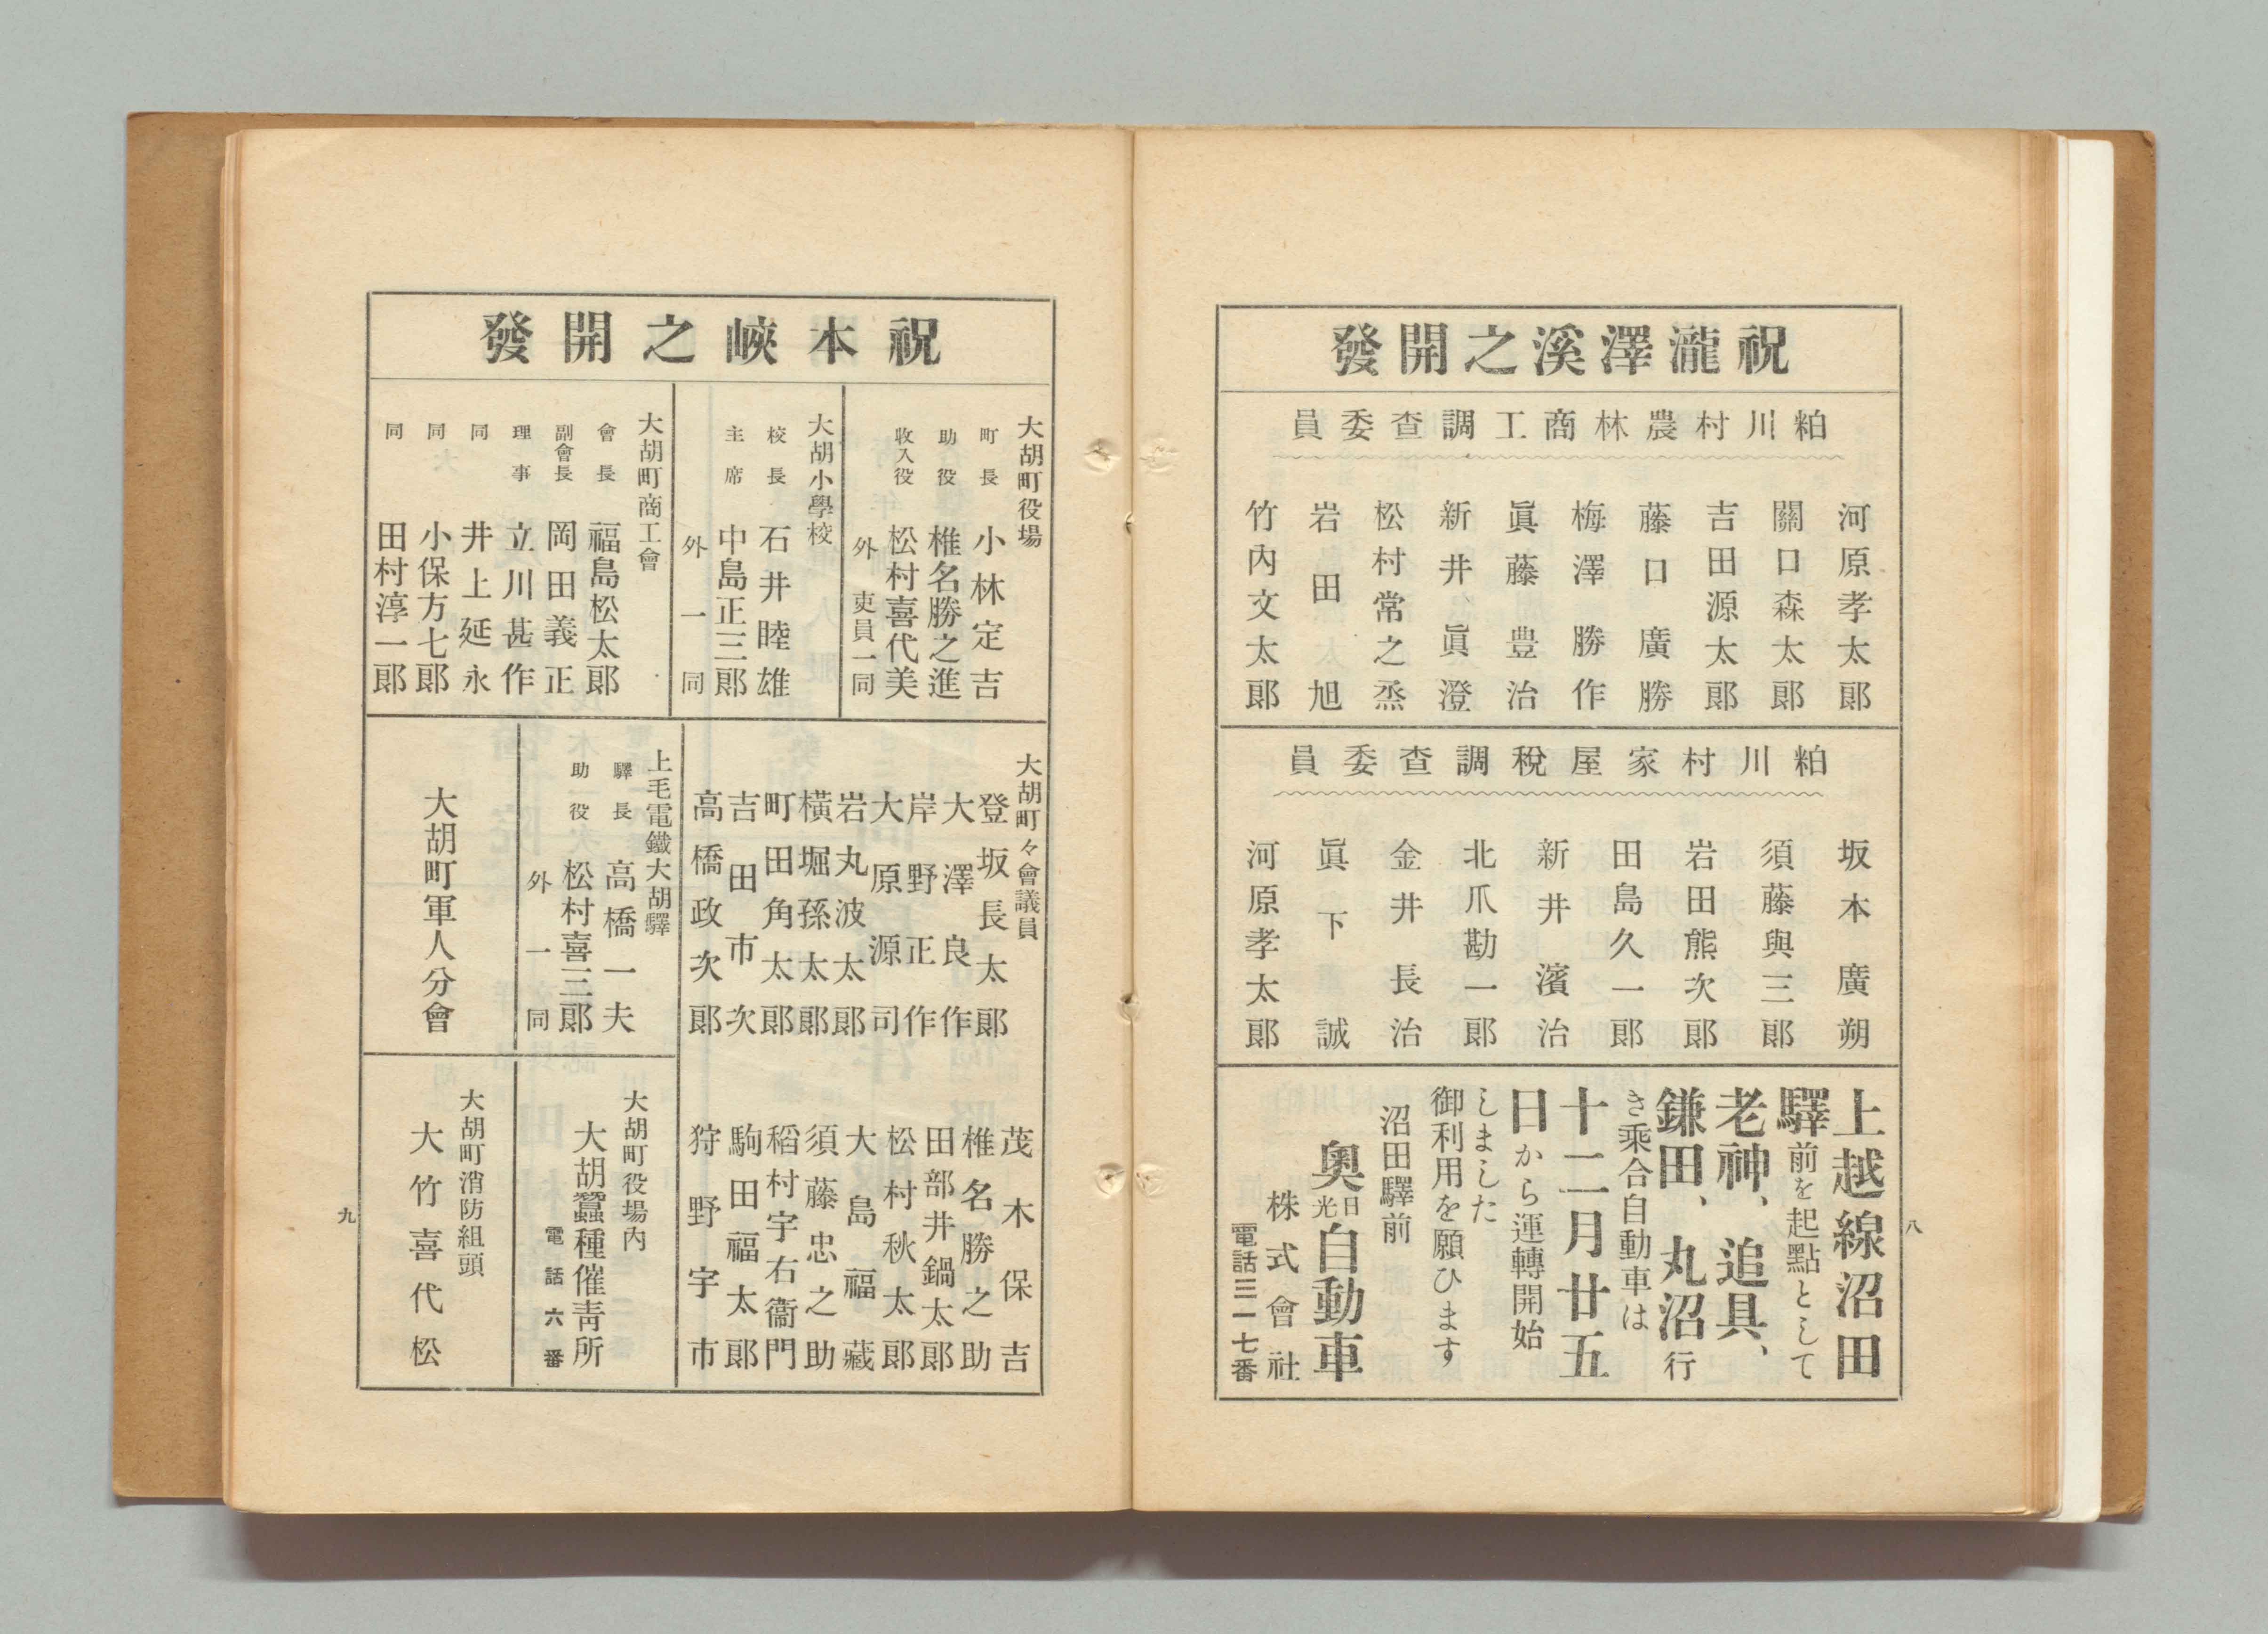 祝瀧澤溪之開發
粕川村農林商工調査委員
河原孝太郎
關口森太郎
吉田源太郎
藤口廣勝
梅澤勝作
眞藤豊治
新井眞澄
松村常之烝
岩田旭
竹內文太郎
粕川村家屋稅調査委員
坂本廣朔
須藤與三郎
岩田熊次郎
田島久一郎
新井濱治
北爪勘一郎
金井長治
眞下誠
河原孝太郎
上越線沼田
驛前を起點として
老神、追具、
鎌田、丸沼行
き乘合自動車は
十二月廿五
日から運轉開始
しました
御利用を願ひます
沼田驛前
奥日光自動車
株式會社
電話三一七番
八
祝本峽之開發
大胡町役場
町長 小林定吉
助役 椎名勝之進
收入役 松村喜代美
外吏員一同
大胡小學校
校長 石井睦雄
主席 中島正三郎
外一同
大胡町商工會
會長 福島松太郎
副會長 岡田義正
理事 立川甚作
同 井上延永
同 小保方七郎
同 田村淳一郎
大胡町々會議員
登坂長太郎
大澤良作
岸野正作
大原源司
岩丸波太郎
橫堀孫太郎
町田角太郎
吉田市次
高橋政次郎
茂木保吉
椎名勝之助
田部井鍋太郎
松村秋太郎
大島福藏
須藤忠之助
稻村宇右衞門
駒田福太郎
狩野宇市
上毛電鐵大胡驛
驛長 高橋一夫
助役 松村喜三郎
外一同
大胡町軍人分會
大胡町役場內
大胡蠶種催靑所
電話六番
大胡町消防組頭
大竹喜代松
九